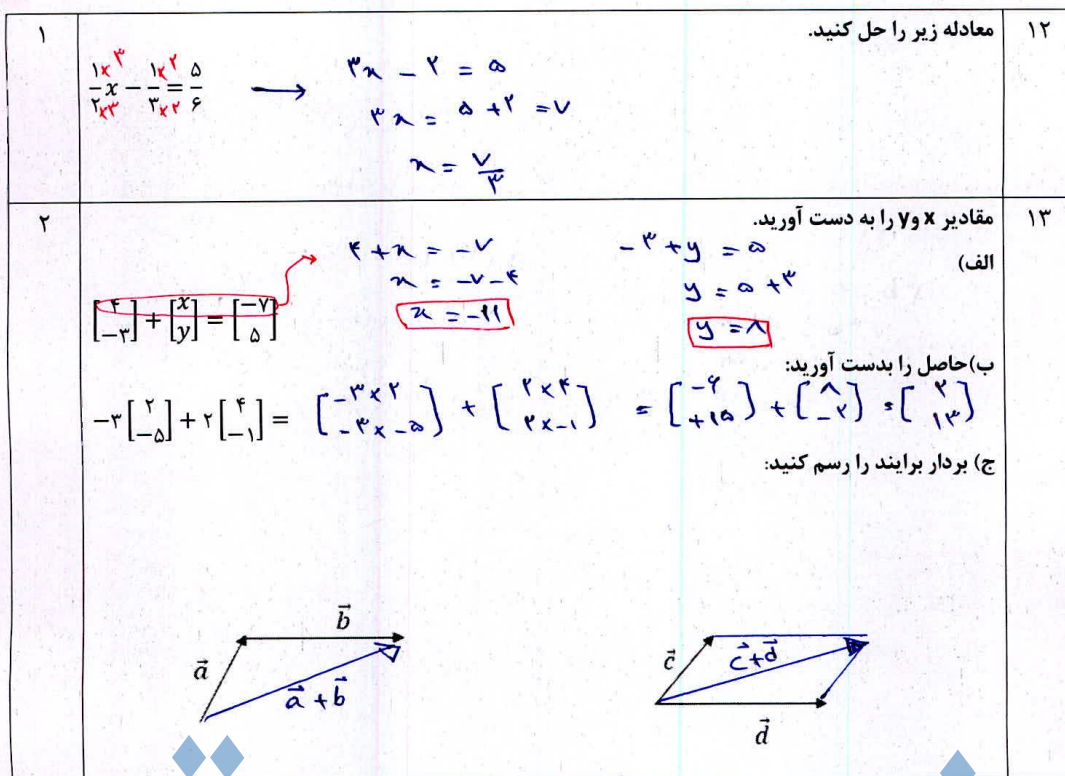 ۱۲ معادله زیر را حل کنید. ۱
۱×۳/۲×۳ x − ۱×۲/۳×۲ = ۵/۶ ⟶ ۳x − ۲ = ۵
۳x = ۵ + ۲ = ۷
x = ۷/۳
۱۳ مقادیر x و y را به دست آورید. ۲
الف)
[۴ −۳] + [x y] = [−۷ ۵]
۴ + x = −۷
x = −۷ − ۴
x = −۱۱
−۳ + y = ۵
y = ۵ + ۳
y = ۸
ب)حاصل را بدست آورید:
−۳[۲ −۵] + ۲[۴ −۱] = [−۳×۲ −۳×−۵] + [۲×۴ ۲×−۱] = [−۶ +۱۵] + [۸ −۲] = [۲ ۱۳]
ج) بردار برایند را رسم کنید:
a⃗ b⃗ a⃗ + b⃗
c⃗ c⃗ + d⃗ d⃗